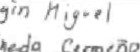 gin Miguel
heda Cermeño